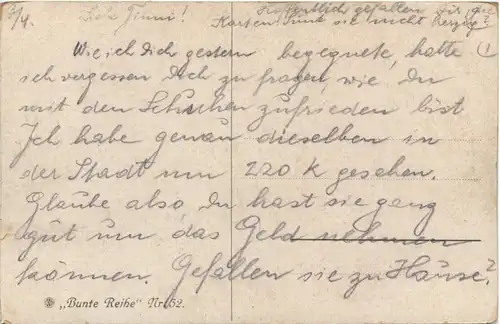 5/4. Liebe Finni! Hoffentlich gefallen Dir die
Karten! Sind sie nicht herzig?
Wie ich Dich gestern begegnete, hatte
ich vergessen Dich zu fragen, wie Du
mit den Schuhen zufrieden bist
Ich habe genau dieselben in
der Stadt um 220 K gesehen.
Glaube also Du hast sie ganz
gut um das Geld nehmen
können. Gefallen sie zu Hause?
"Bunte Reihe" Nr. 52.